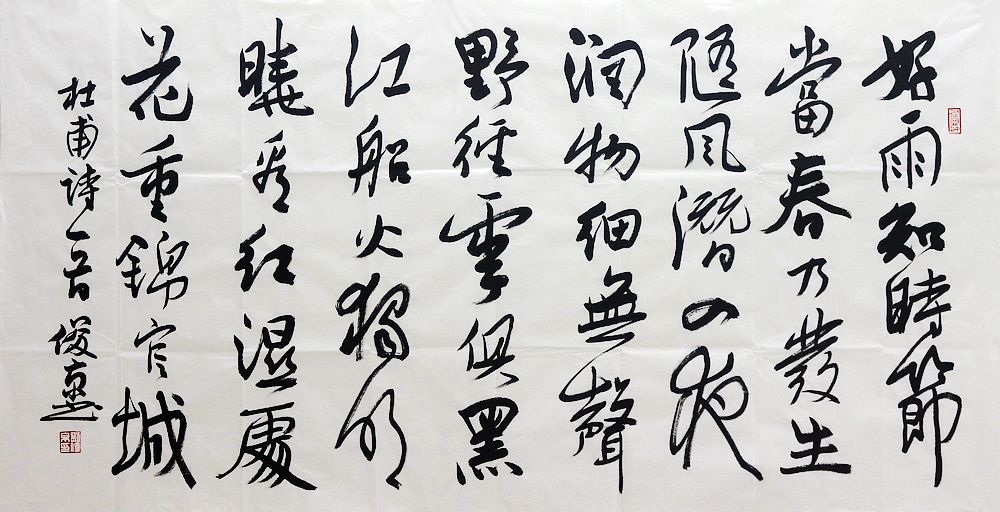 好雨知時節
當春乃發生
隨風潛入夜
潤物細無聲
野徑雲俱黑
江船火獨明
曉看紅濕處
花重錦官城
杜甫诗一首 俊